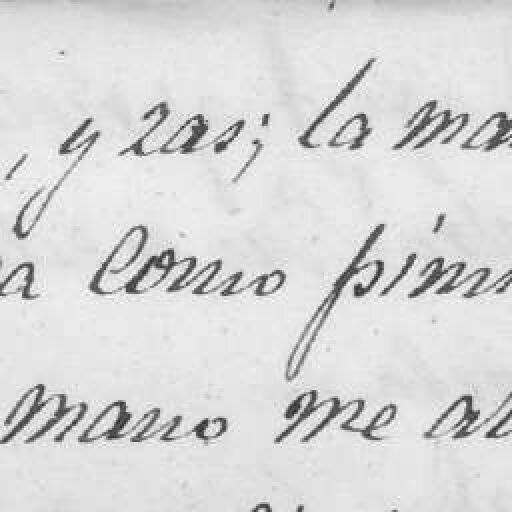 , y zas; la ma
a como pim
mano me a